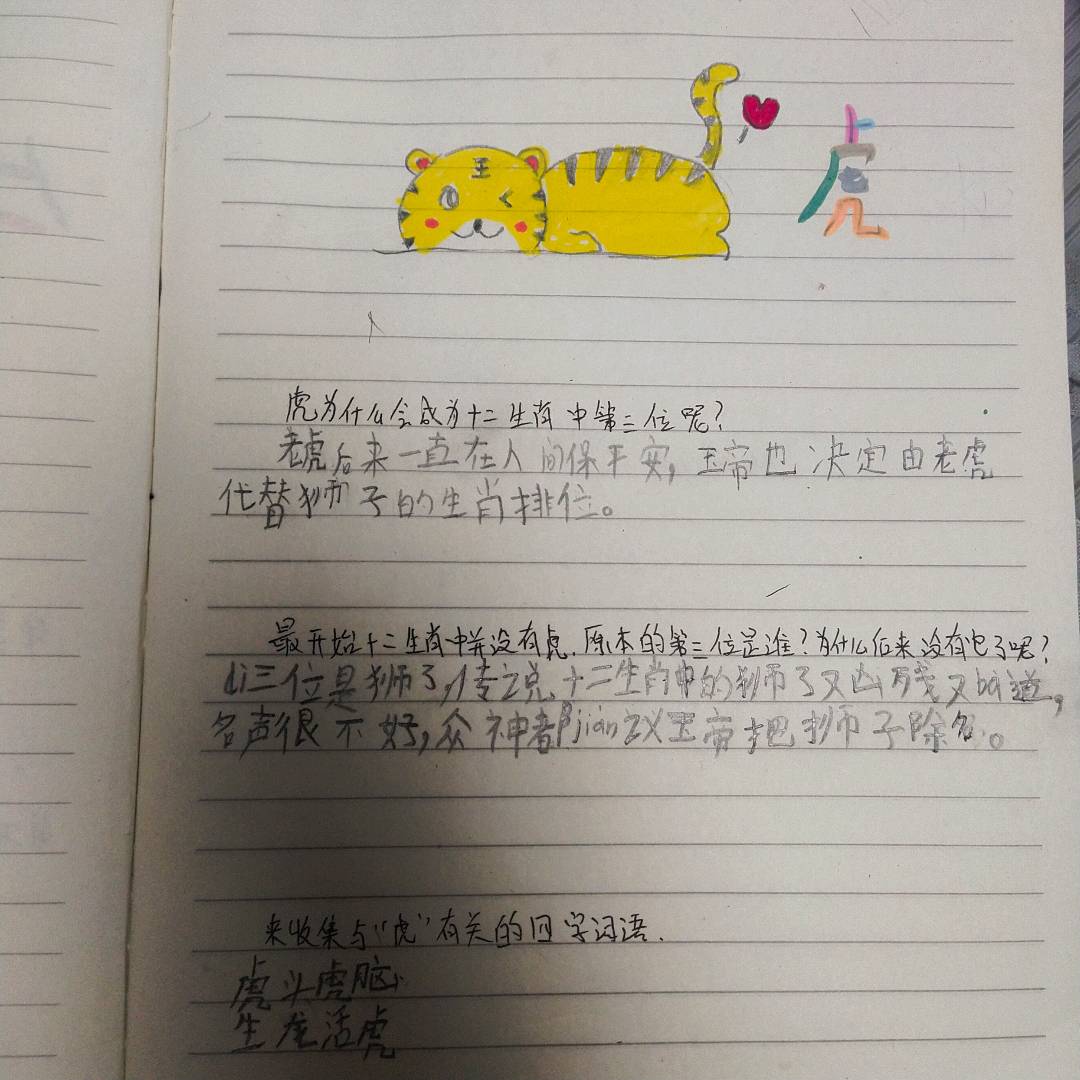 王
虎
虎为什么会成为十二生肖中第三位呢?
老虎后来一直在人间保平安,玉帝也决定由老虎
代替狮子的生肖排位。
最开始十二生肖中并没有虎,原本的第三位是谁?为什么后来没有它了呢?
di三位是狮子,传说十二生肖中的狮子又凶残又ba道,
名声很不好,众神都jian议玉帝把狮子除名。
来收集与"虎"有关的四字词语.
虎头虎脑
生龙活虎